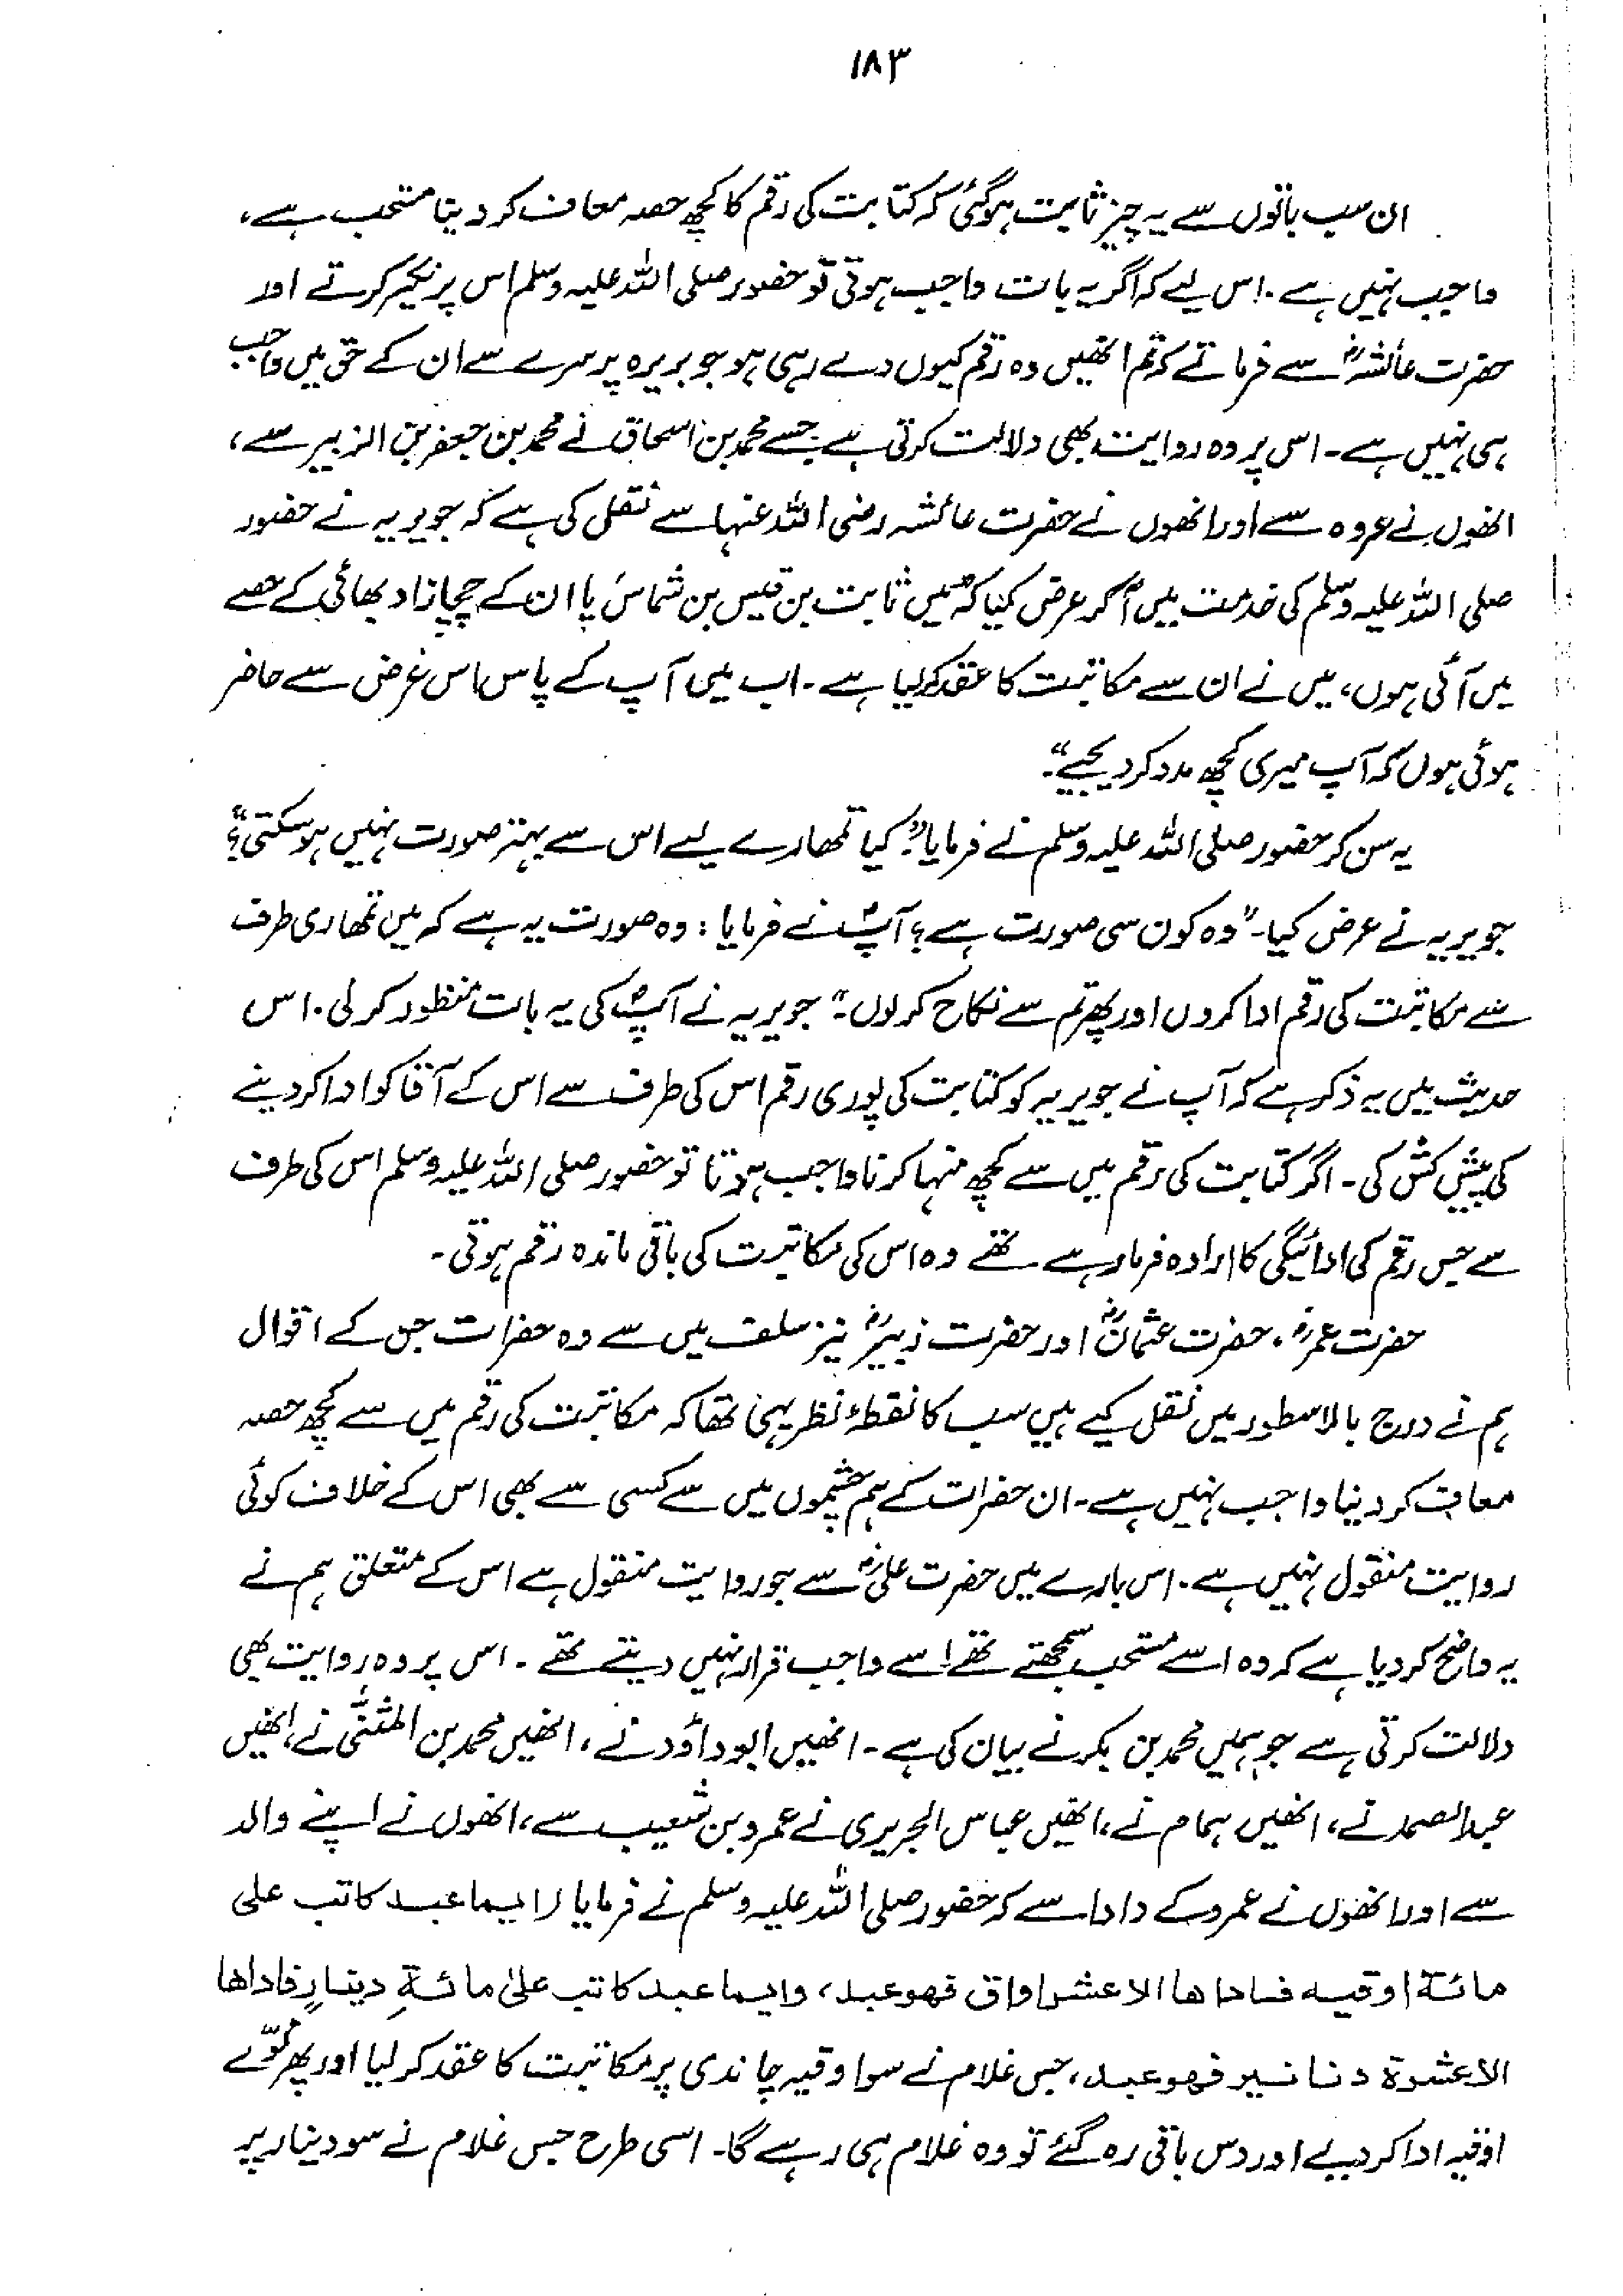 ۱۸۳
ان سب باتوں سے یہ چیز ثابت ہوگئی کہ کتابت کی رقم کا کچھ حصہ معاف کر دینا مستحب ہے،
واجب نہیں ہے۔ اس لیے کہ اگر یہ بات واجب ہوتی تو حضور صلی اللہ علیہ وسلم اس پر نکیر کرتے اور
حضرت عائشہؓ سے فرماتے کہ تم انھیں وہ رقم کیوں دے رہی ہو جو بریرہ پر سرے سے ان کے حق میں واجب
ہی نہیں ہے۔ اس پر وہ روایت بھی دلالت کرتی ہے جسے محمد بن اسحاق نے محمد بن جعفر بن الزبیر سے،
انھوں نے عروہ سے اور انھوں نے حضرت عائشہ رضی اللہ عنہا سے نقل کی ہے کہ جویریہ نے حضور
صلی اللہ علیہ وسلم کی خدمت میں آ کر عرض کیا کہ "میں ثابت بن قیس بن شماس یا ان کے چچازاد بھائی کے حصے
میں آئی ہوں، میں نے ان سے مکاتبت کا عقد کرلیا ہے۔ اب میں آپ کے پاس اس غرض سے حاضر
ہوئی ہوں کہ آپ میری کچھ مدد کر دیجیے"۔
یہ سن کر حضور صلی اللہ علیہ وسلم نے فرمایا: "کیا تمھارے لیے اس سے بہتر صورت نہیں ہو سکتی؟"
جویریہ نے عرض کیا۔ "وہ کون سی صورت ہے؟ آپؐ نے فرمایا: وہ صورت یہ ہے کہ میں تمھاری طرف
سے مکاتبت کی رقم ادا کردوں اور پھر تم سے نکاح کر لوں۔" جویریہ نے آپؐ کی یہ بات منظور کر لی۔ اس
حدیث میں یہ ذکر ہے کہ آپ نے جویریہ کو کتابت کی پوری رقم اس کی طرف سے اس کے آقا کو ادا کر دینے
کی پیش کش کی۔ اگر کتابت کی رقم میں سے کچھ منہا کرنا واجب ہوتا تو حضور صلی اللہ علیہ وسلم اس کی طرف
سے جس رقم کی ادائیگی کا ارادہ فرما رہے تھے وہ اس کی مکاتبت کی باقی ماندہ رقم ہوتی۔
حضرت عمرؓ، حضرت عثمانؓ اور حضرت زبیرؓ نیز سلف میں سے وہ حضرات جن کے اقوال
ہم نے درج بالا سطور میں نقل کیے ہیں سب کا نقطۂ نظر یہی تھا کہ مکاتبت کی رقم میں سے کچھ حصہ
معاف کر دینا واجب نہیں ہے۔ ان حضرات کے ہم چشموں میں سے کسی سے بھی اس کے خلاف کوئی
روایت منقول نہیں ہے۔ اس بارے میں حضرت علیؓ سے جو روایت منقول ہے اس کے متعلق ہم نے
یہ واضح کر دیا ہے کہ وہ اسے مستحب سمجھتے تھے اسے واجب قرار نہیں دیتے تھے۔ اس پر وہ روایت بھی
دلالت کرتی ہے جو ہمیں محمد بن بکر نے بیان کی ہے۔ انھیں ابو داؤد نے، انھیں محمد بن المثنٰی نے، انھیں
عبدالصمد نے، انھیں ہمام نے، انھیں عباس الجریری نے عمرو بن شعیب سے، انھوں نے اپنے والد
سے اور انھوں نے عمرو کے دادا سے کہ حضور صلی اللہ علیہ وسلم نے فرمایا (ایما عبد کاتب علی
مائۃ اوقیہ فاداھا الا عشر اواق فھو عبد، وایما عبد کاتب علیٰ مائۃِ دینارٍ فاداھا
الا عشرۃ دنانیر فھو عبد، جس غلام نے سو اوقیہ چاندی پر مکاتبت کا عقد کر لیا اور پھر نوّے
اوقیہ ادا کر دیے اور دس باقی رہ گئے تو وہ غلام ہی رہے گا۔ اسی طرح جس غلام نے سو دینار پر